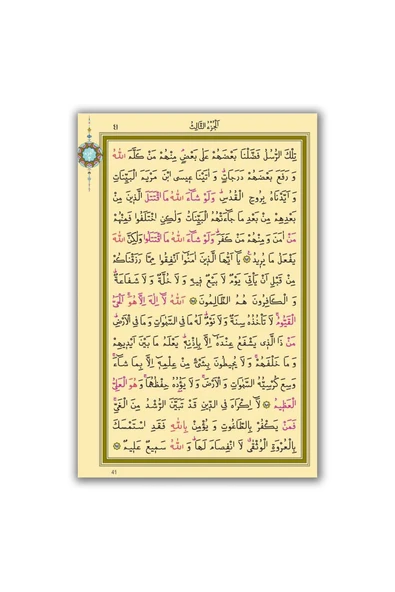 اَلْجُزْءُ الثَّالِثُ
تِلْكَ الرُّسُلُ فَضَّلْنَا بَعْضَهُمْ عَلٰى بَعْضٍۢ مِنْهُمْ مَنْ كَلَّمَ اللّٰهُ
وَرَفَعَ بَعْضَهُمْ دَرَجَاتٍۜ وَاٰتَيْنَا عِيسَى ابْنَ مَرْيَمَ الْبَيِّنَاتِ
وَاَيَّدْنَاهُ بِرُوحِ الْقُدُسِۜ وَلَوْ شَٓاءَ اللّٰهُ مَا اقْتَتَلَ الَّذِينَ مِنْ
بَعْدِهِمْ مِنْ بَعْدِ مَا جَٓاءَتْهُمُ الْبَيِّنَاتُ وَلٰكِنِ اخْتَلَفُوا فَمِنْهُمْ
مَنْ اٰمَنَ وَمِنْهُمْ مَنْ كَفَرَۜ وَلَوْ شَٓاءَ اللّٰهُ مَا اقْتَتَلُوا وَلٰكِنَّ اللّٰهَ
يَفْعَلُ مَا يُرِيدُ يَٓا اَيُّهَا الَّذِينَ اٰمَنُٓوا اَنْفِقُوا مِمَّا رَزَقْنَاكُمْ
مِنْ قَبْلِ اَنْ يَأْتِيَ يَوْمٌ لَا بَيْعٌ فِيهِ وَلَا خُلَّةٌ وَلَا شَفَاعَةٌۜ
وَالْكَافِرُونَ هُمُ الظَّالِمُونَ اَللّٰهُ لَٓا اِلٰهَ اِلَّا هُوَۚ اَلْحَيُّ
الْقَيُّومُۚ لَا تَأْخُذُهُ سِنَةٌ وَلَا نَوْمٌۜ لَهُ مَا فِي السَّمٰوَاتِ وَمَا فِي الْاَرْضِۜ
مَنْ ذَا الَّذِي يَشْفَعُ عِنْدَهُٓ اِلَّا بِاِذْنِهِۜ يَعْلَمُ مَا بَيْنَ اَيْدِيهِمْ
وَمَا خَلْفَهُمْۚ وَلَا يُحِيطُونَ بِشَيْءٍ مِنْ عِلْمِهِٓ اِلَّا بِمَا شَٓاءَۚ
وَسِعَ كُرْسِيُّهُ السَّمٰوَاتِ وَالْاَرْضَۚ وَلَا يَؤُدُهُ حِفْظُهُمَاۚ وَهُوَ الْعَلِيُّ
الْعَظِيمُ لَٓا اِكْرَاهَ فِي الدِّينِ قَدْ تَبَيَّنَ الرُّشْدُ مِنَ الْغَيِّۚ
فَمَنْ يَكْفُرْ بِالطَّاغُوتِ وَيُؤْمِنْ بِاللّٰهِ فَقَدِ اسْتَمْسَكَ
بِالْعُرْوَةِ الْوُثْقٰىۗ لَا انْفِصَامَ لَهَاۜ وَاللّٰهُ سَمِيعٌ عَلِيمٌ
41